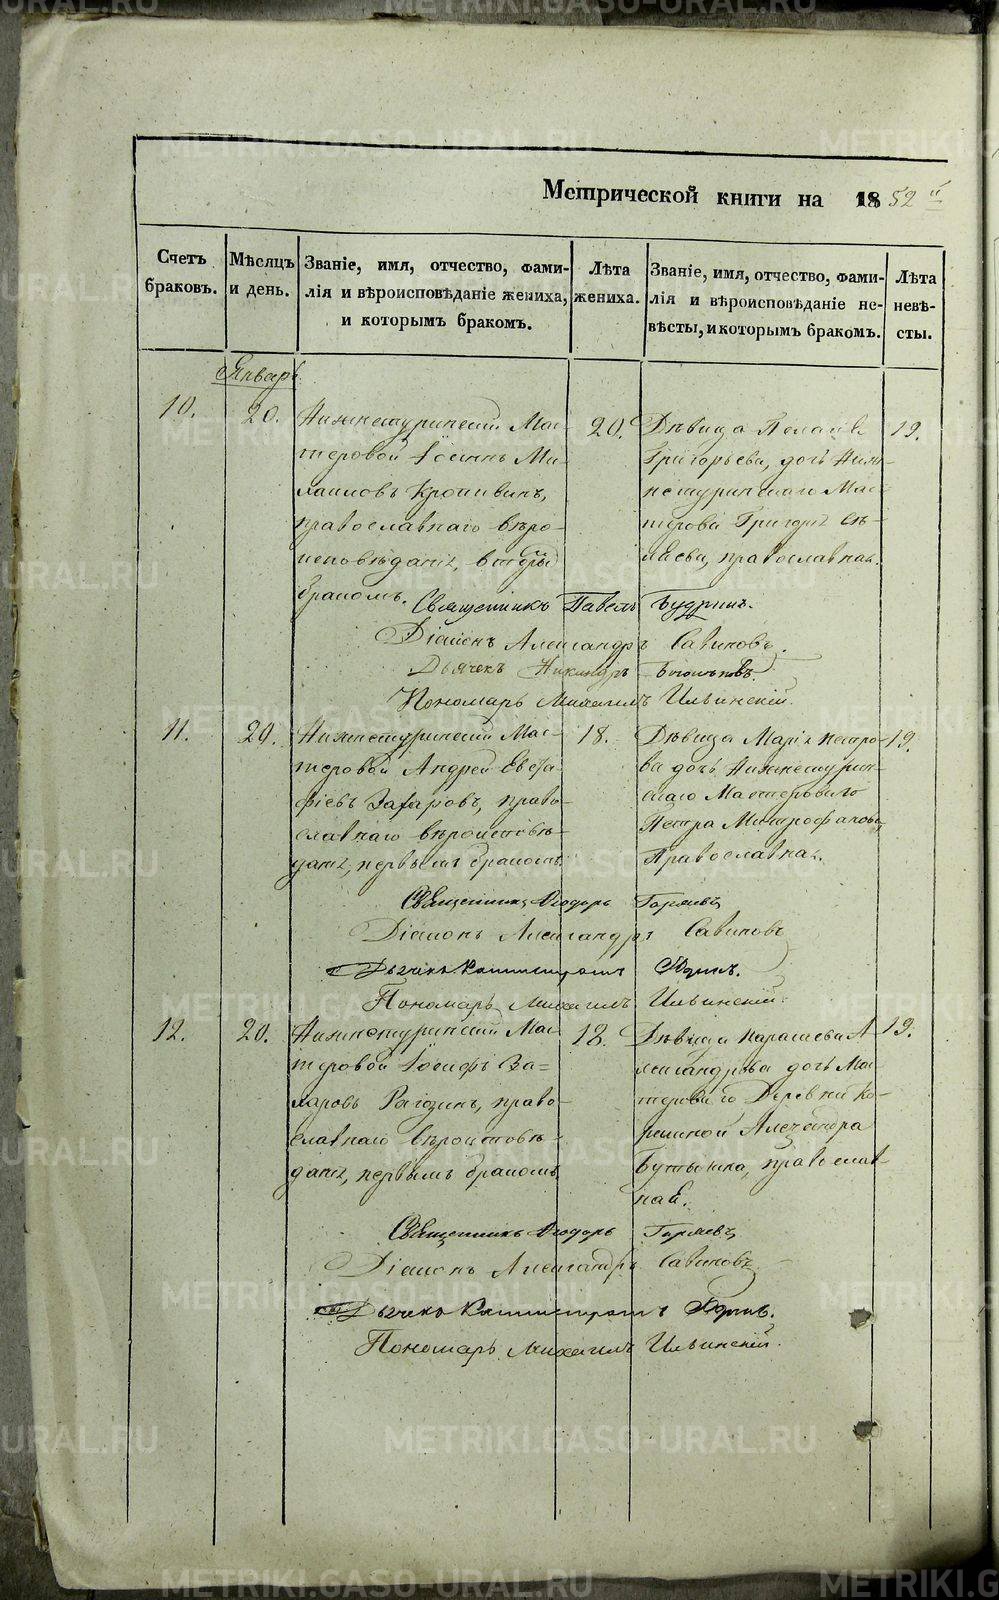 Метрической книги на 1852й
Счетъ браковъ.
Мѣсяцъ и день.
Званіе, имя, отчество, фами-
лія и вѣроисповѣданіе жениха,
и которымъ бракомъ.
Лѣта
жениха.
Званіе, имя, отчество, фами-
лія и вѣроисповѣданіе не-
вѣсты, и которымъ бракомъ.
Лѣта
невѣ-
сты.
Январь
10.
20.
Нижнетуринскій Мас-
теровой Іоаннъ Ми-
хаиловъ Кропивинъ,
православнаго вѣро-
исповѣданія, вторы
бракомъ.
20.
Дѣвица Пелагія
Григорьева, дочь Ниж-
нетуринскаго Мас-
терова Григорія
православная.
19.
Священникъ Павелъ Будринъ.
Діаконъ Александръ Савиновъ.
Дьячекъ Никандръ
Пономарь Михаилъ Ильинскій.
11.
20.
Нижнетуринскій Мас-
теровой Андрей Евста-
фіевъ Захаровъ, право-
славнаго вѣроисповѣ-
данія, первымъ бракомъ
18.
Дѣвица Марія Петро-
ва дочь Нижнетурин-
скаго Мастероваго
Петра Митрофанова
Православная.
19.
Священникъ Ѳеодоръ Горяевъ
Діаконъ Александръ Савиновъ
Дьячекъ
Пономарь Михаилъ Ильинскій.
12.
20.
Нижнетуринскій Мас-
теровой Іосифъ За-
харовъ Рагозинъ, право-
славнаго вѣроисповѣ-
данія, первымъ бракомъ
18.
Дѣвица Парасцева А-
лександрова дочь Мас-
тероваго Деревни Ко-
релиной Александра
православ-
ная.
19.
Священникъ Ѳеодоръ Горяевъ
Діаконъ Александръ Савиновъ
Дьячекъ
Пономарь Михаилъ Ильинскій.
METRIKI.GASO-URAL.RU